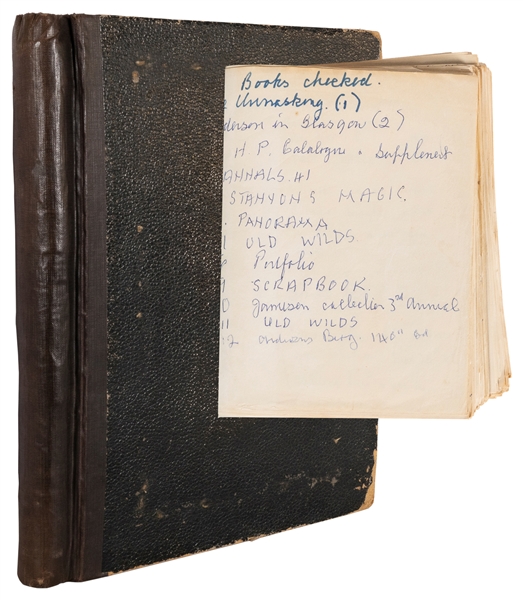 Books checked.
Unmasking. (1)
derson in Glasgow (2)
H P. Catalogue . Supplement
ANNALS. 41
STANYONS MAGIC.
PANORAMA
OLD WILDS.
Portfolio
SCRAPBOOK.
0 Jamieson collection 3rd Annual
11 OLD WILDS
Biog.